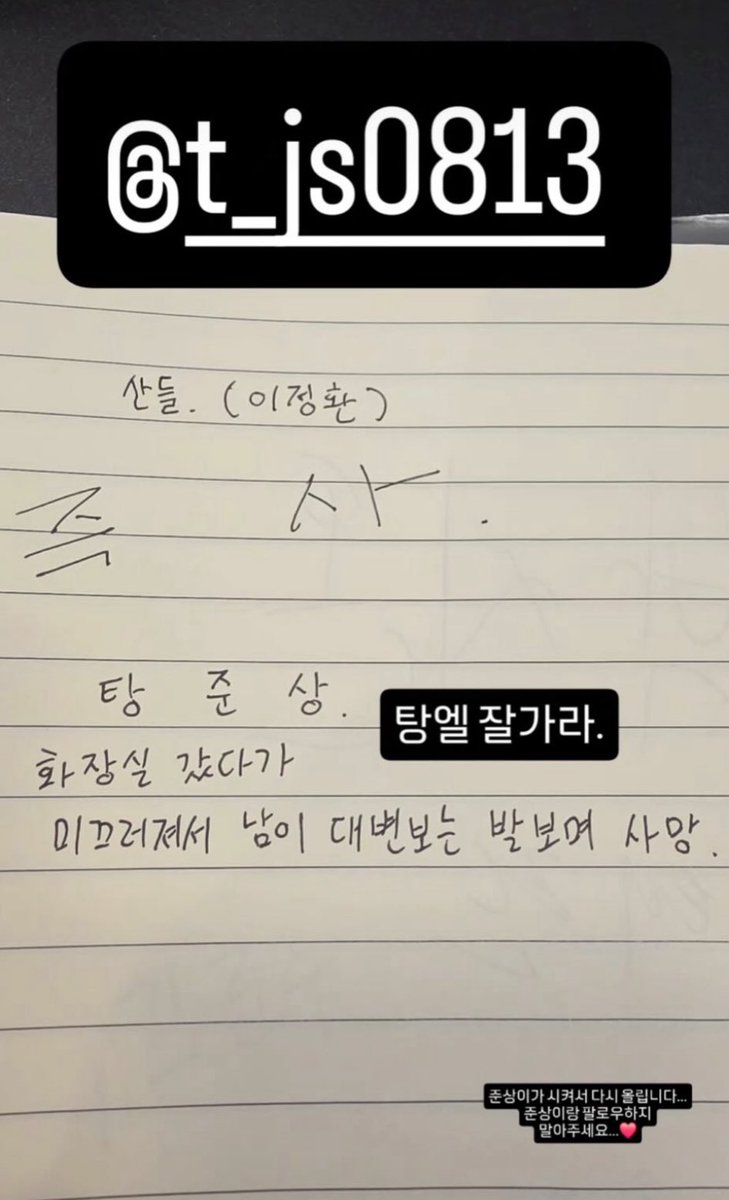 @t_js0813
산들. (이정환)
즉 사.
탕 준 상.
탕엘 잘가라.
화장실 갔다가
미끄러져서 남이 대변보는 발 보며 사망.
준상이가 시켜서 다시 올립니다...
준상이랑 팔로우하지
말아주세요...❤️